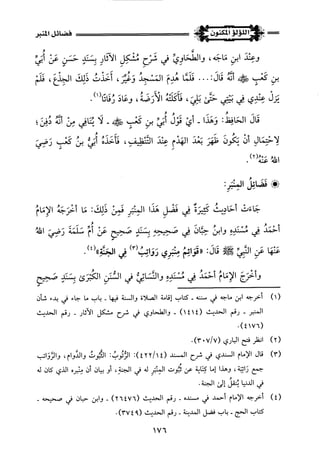 اللؤلؤ المكنون
فضائل المنبر
وَعِنْدَ ابنِ مَاجَه، والطَّحَاوِيِّ في شَرْحِ مُشْكِلِ الآثَارِ بِسَنَدٍ حَسَنٍ عَنْ أُبَيِّ
بنِ كَعْبٍ ﷺ أَنَّهُ قَالَ: ... فَلَمَّا هُدِمَ المَسْجِدُ وَغُيِّرَ، أَخَذْتُ ذَلِكَ الجِذْعَ، فَلَمْ
يَزَلْ عِنْدِي فِي بَيْتِي حَتَّى بَلِيَ، فَأَكَلَتْهُ الأَرَضَةُ، وعَادَ رُفَاتًا(١).
قَالَ الحَافِظُ: وَهَذَا - أَيْ قَوْلُ أُبَيِّ بنِ كَعْبٍ ﷺ - لَا يُنَافِي مِنْ أَنَّهُ دُفِنَ؛
لِاحْتِمَالِ أَنْ يَكُونَ ظَهَرَ بَعْدَ الهَدْمِ عِنْدَ التَّنْظِيفِ، فَأَخَذَهُ أُبَيُّ بنُ كَعْبٍ رَضِيَ
اللهُ عَنْهُ(٢).
فَضَائِلُ المِنْبَرِ:
جَاءَتْ أَحَادِيثُ كَثِيرَةٌ في فَضْلِ هَذَا المِنْبَرِ فَمِنْ ذَلِكَ: مَا أَخْرَجَهُ الإِمَامُ
أَحْمَدُ في مُسْنَدِهِ وابنُ حِبَّانَ في صَحِيحِهِ بِسَنَدٍ صَحِيحٍ عَنْ أُمِّ سَلَمَةَ رَضِيَ اللهُ
عَنْهَا عَنِ النَّبِيِّ ﷺ قَالَ: «قَوَائِمُ مِنْبَرِي رَوَاتِبُ(٣) في الجَنَّةِ»(٤).
وَأَخْرَجَ الإِمَامُ أَحْمَدُ في مُسْنَدِهِ والنَّسَائِيُّ في السُّنَنِ الكُبْرَى بِسَنَدٍ صَحِيحٍ
(١) أخرجه ابن ماجه في سننه - كتاب إقامة الصلاة والسنة فيها - باب ما جاء في بدء شأن
المنبر - رقم الحديث (١٤١٤) - والطحاوي في شرح مشكل الآثار - رقم الحديث
(٤١٧٦).
(٢) انظر فتح الباري (٣٠٧/٧).
(٣) قال الإمام السندي في شرح المسند (٤٢٢/١٤): الرُّتُوبُ: الثُّبُوتُ والدَّوام، والرَّواتب
جمع رَاتِبَة، وهذا إما كِنَايَة عن ثُبوت المِنْبَر له في الجنة، أو بيان أن مِنْبره الذي كان له
في الدنيا يُنقَلُ إلى الجنة.
(٤) أخرجه الإمام أحمد في مسنده - رقم الحديث (٢٦٤٧٦) - وابن حبان في صحيحه -
كتاب الحج - باب فضل المدينة - رقم الحديث (٣٧٤٩).
١٧٦